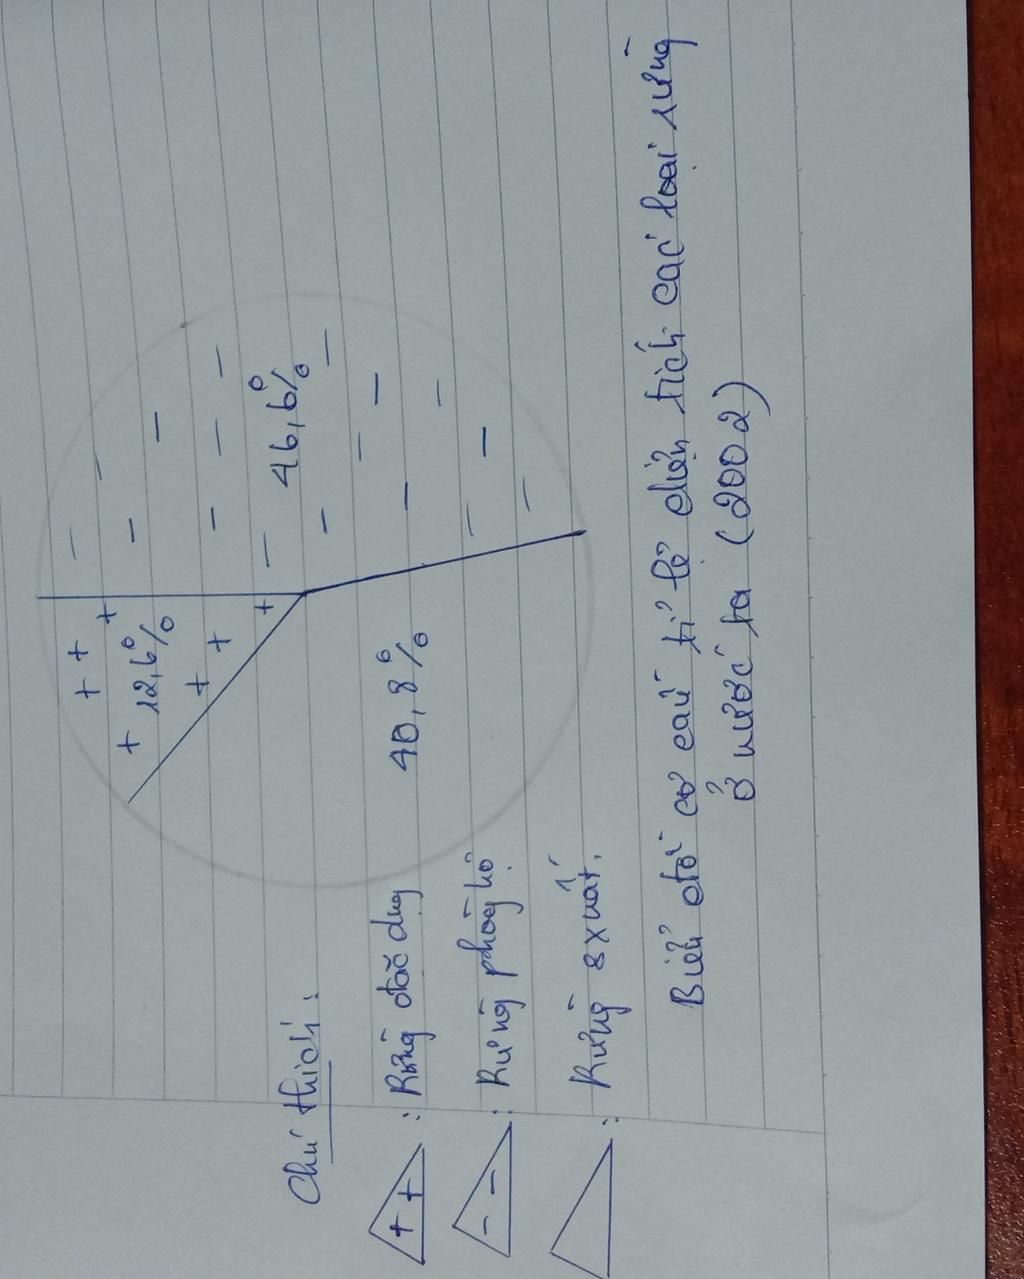 12,6%
46,6%
40,8%
Chú thích:
+ + : Rừng đặc dụng
- - : Rừng phòng hộ
: Rừng sxuất.
Biểu đồ cơ cấu tỉ lệ diện tích các loại rừng
ở nước ta (2002)